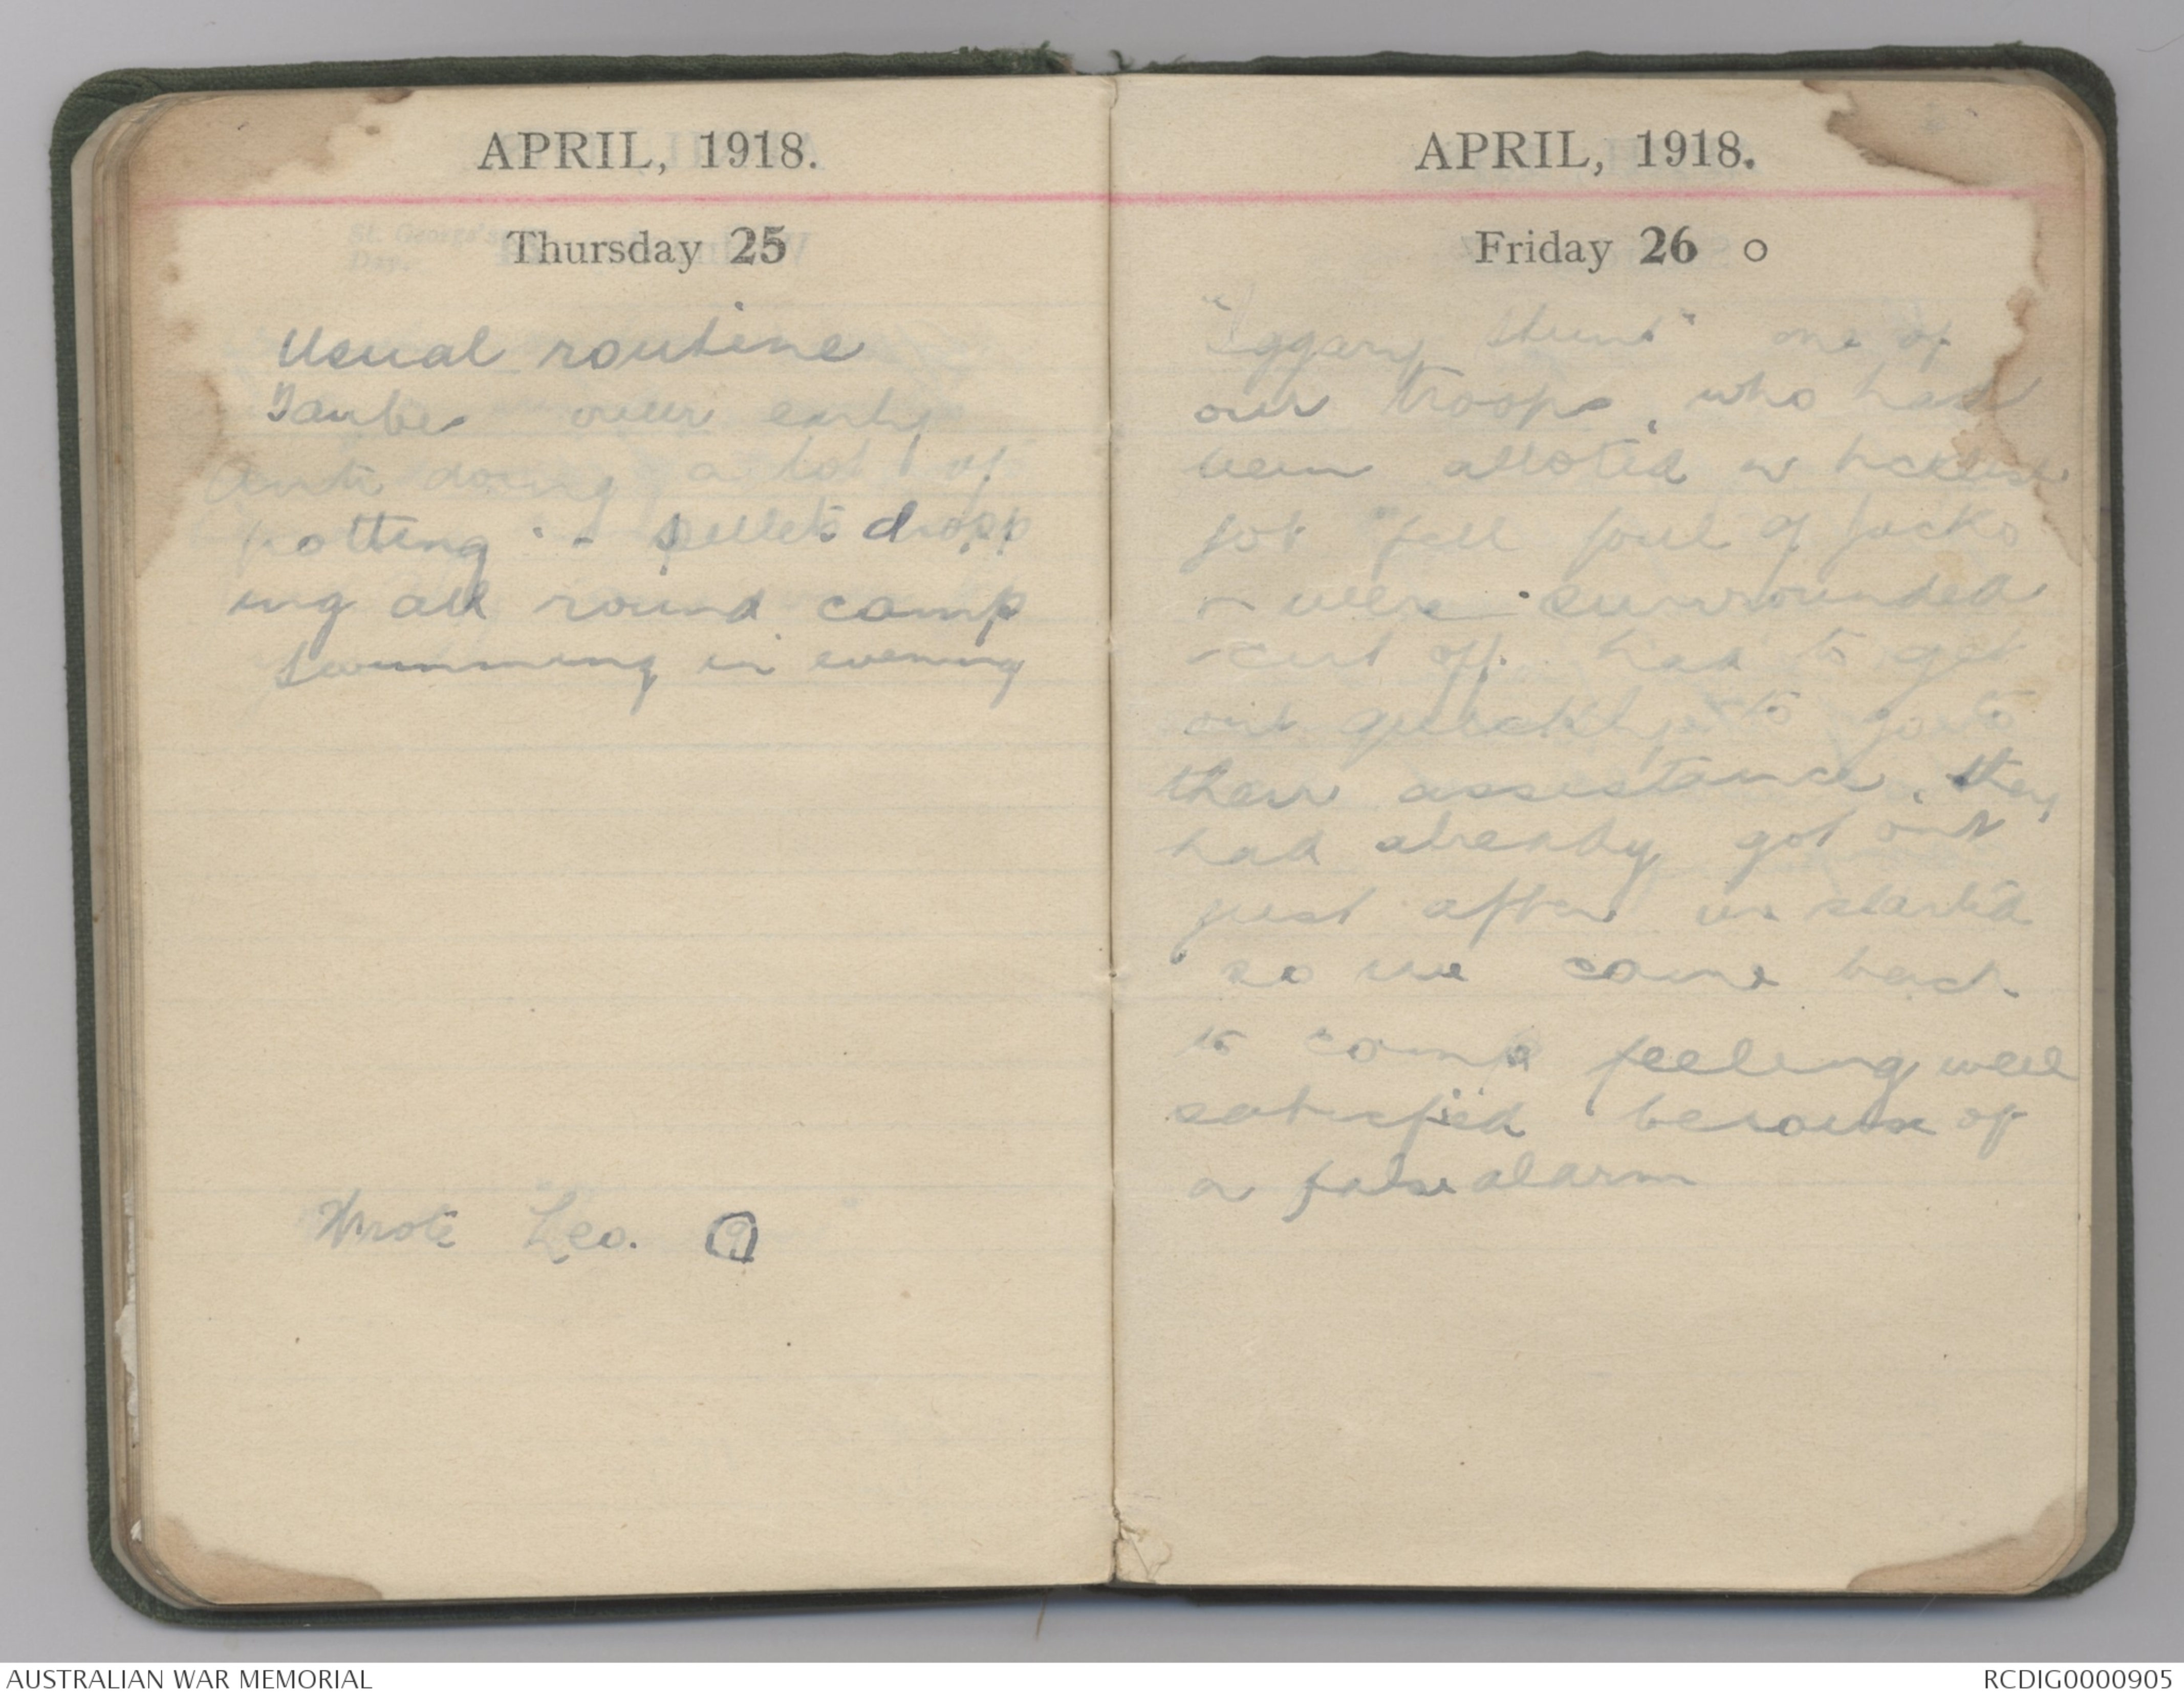 APRIL, 1918.
Thursday 25
Usual routine
Taube over early
Anti doing a lot of
potting - pellets dropp
ing all round camp
swimming in evening
Wrote Leo. 9
APRIL, 1918.
Friday 26 o
stunt" one of
our troops, who had
been alloted a
job "fell foul of Jacko
were surrounded
cut off. had to get
out quickly to go to
their assistance. they
had already got out
just after we started
so we came back
to camp feeling well
satisfied because of
a false alarm
AUSTRALIAN WAR MEMORIAL
RCDIG0000905